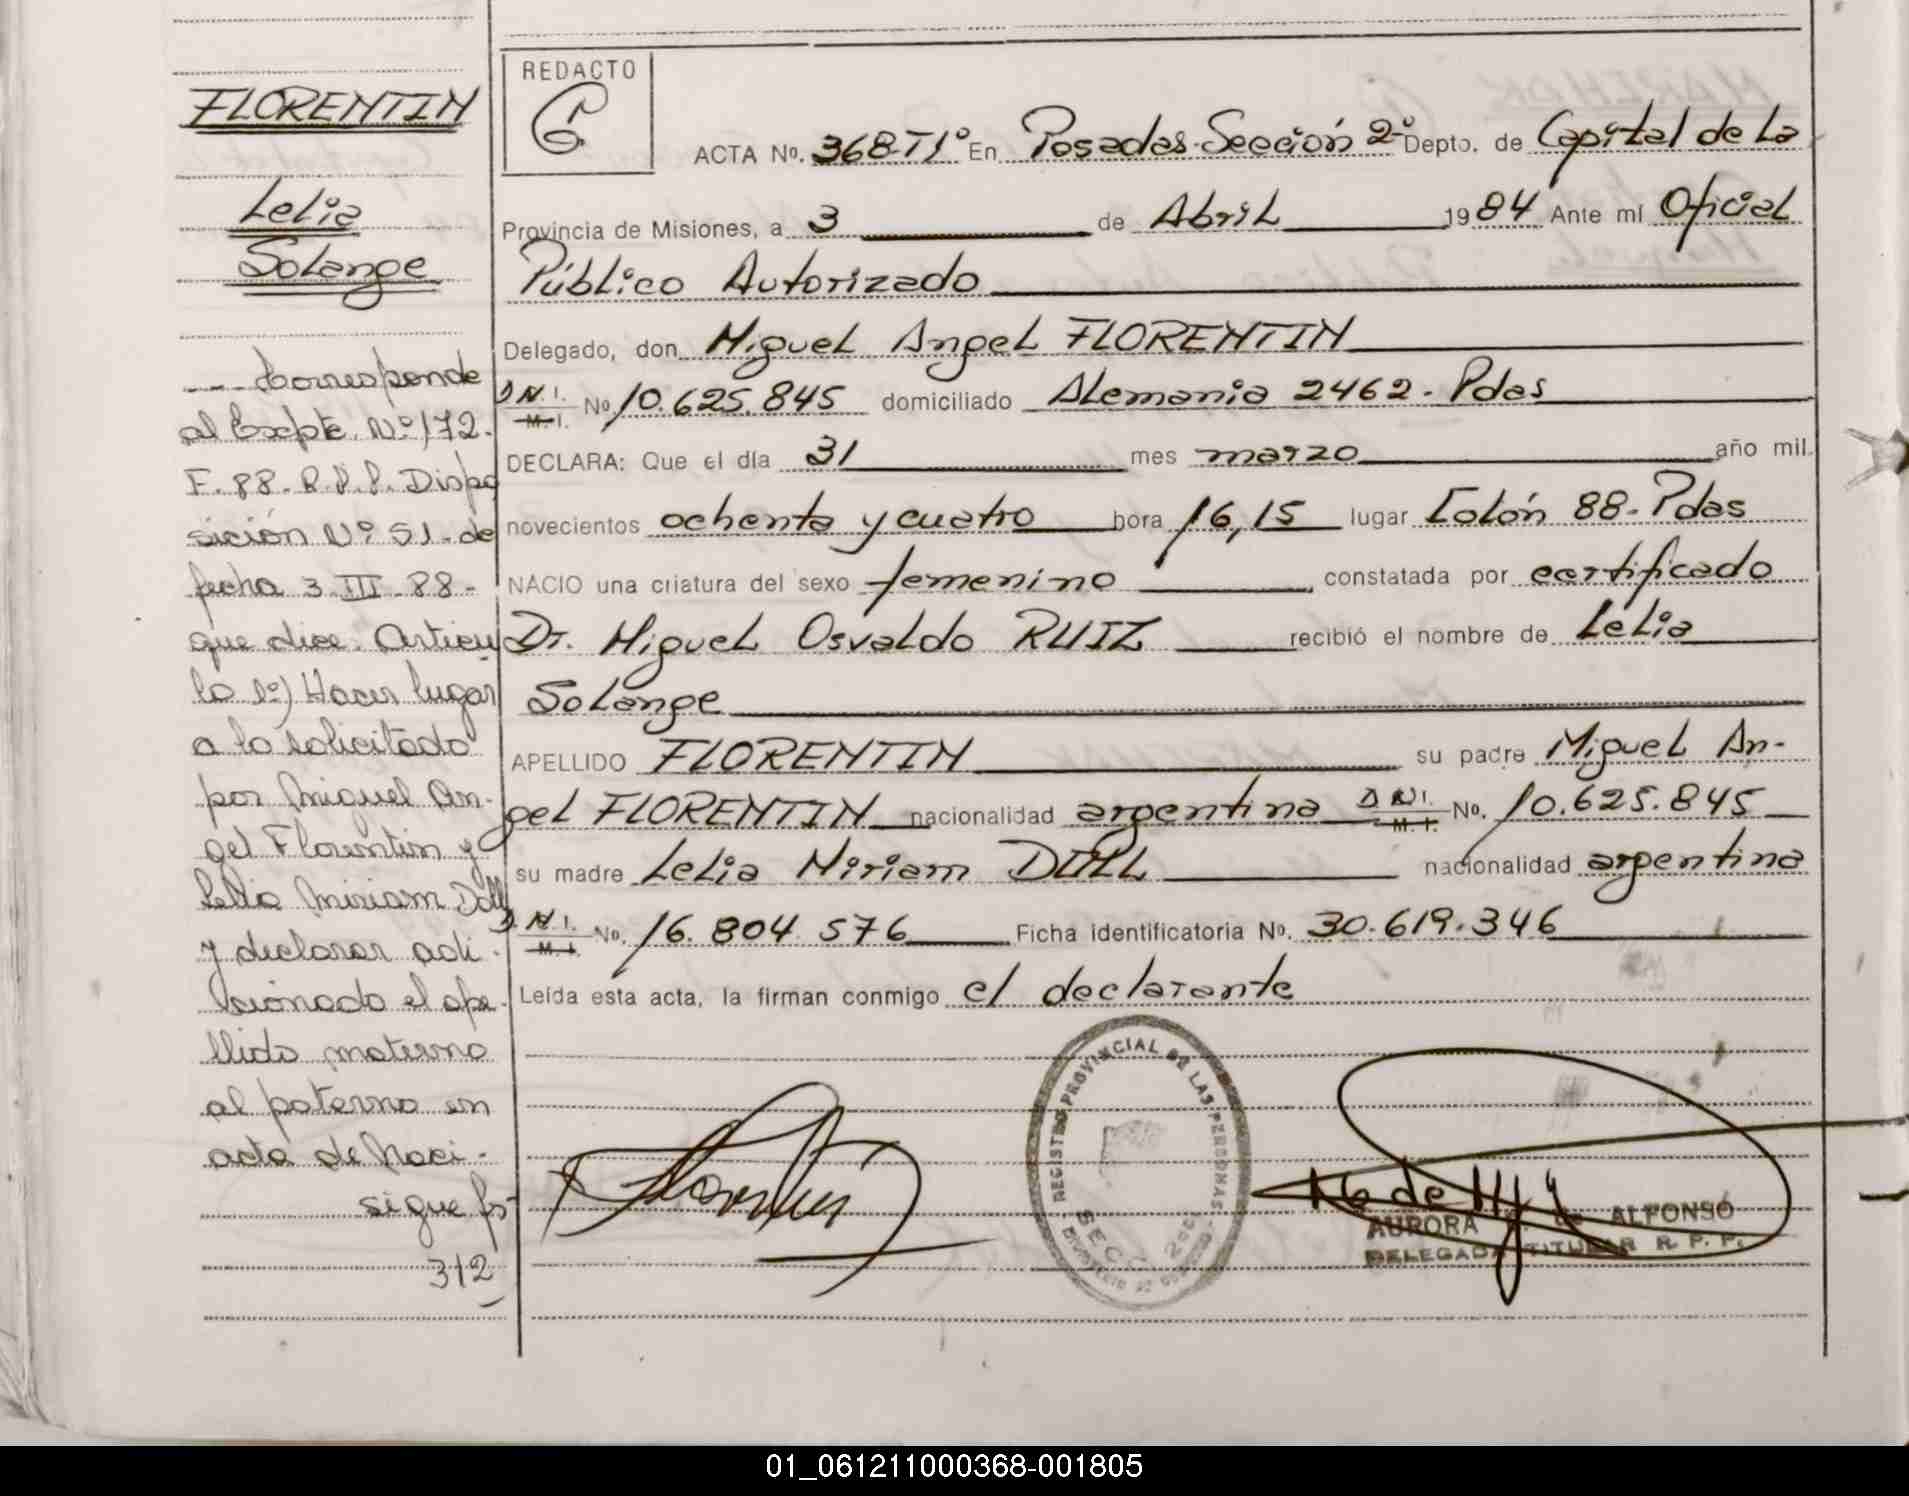 FLORENTIN
Lelia
Solange
--- Corresponde
al Expte. Nº 172.
F. 88. R.P.P. Dispo
sición Nº 51. de
fecha 3-III-88-
que dice: Artícu
lo 1º) Hacer lugar
a lo solicitado
por Miguel An-
gel Florentin y
Lelia Miriam Doll
y declarar adi-
cionado el ape-
llido materno
al paterno en
acta de Naci-
sigue fs
312
REDACTO
ACTA No. 368-T1º En Posadas-Sección 2º Depto. de Capital de La
Provincia de Misiones, a 3 de Abril 1984 Ante mí Oficial
Público Autorizado
Delegado, don Miguel Angel FLORENTIN
D.N.I. M.I. No 10.625.845 domiciliado Alemania 2462-Pdas
DECLARA: Que el día 31 mes marzo año mil
novecientos ochenta y cuatro hora 16,15 lugar Colón 88-Pdas
NACIO una criatura del sexo femenino, constatada por certificado
Dr. Miguel Osvaldo RUIZ recibió el nombre de Lelia
Solange
APELLIDO FLORENTIN su padre Miguel An-
gel FLORENTIN nacionalidad argentina D.N.I. M.I. No. 10.625.845
su madre Lelia Miriam DOLL nacionalidad argentina
D.N.I. M.I. No. 16.804.576 Ficha identificatoria No. 30.619.346
Leída esta acta, la firman conmigo el declarante
REGISTRO PROVINCIAL DE LAS PERSONAS
SECC. 2da
AURORA de ALFONSO
DELEGADA TITULAR R. P. P.
01_061211000368-001805